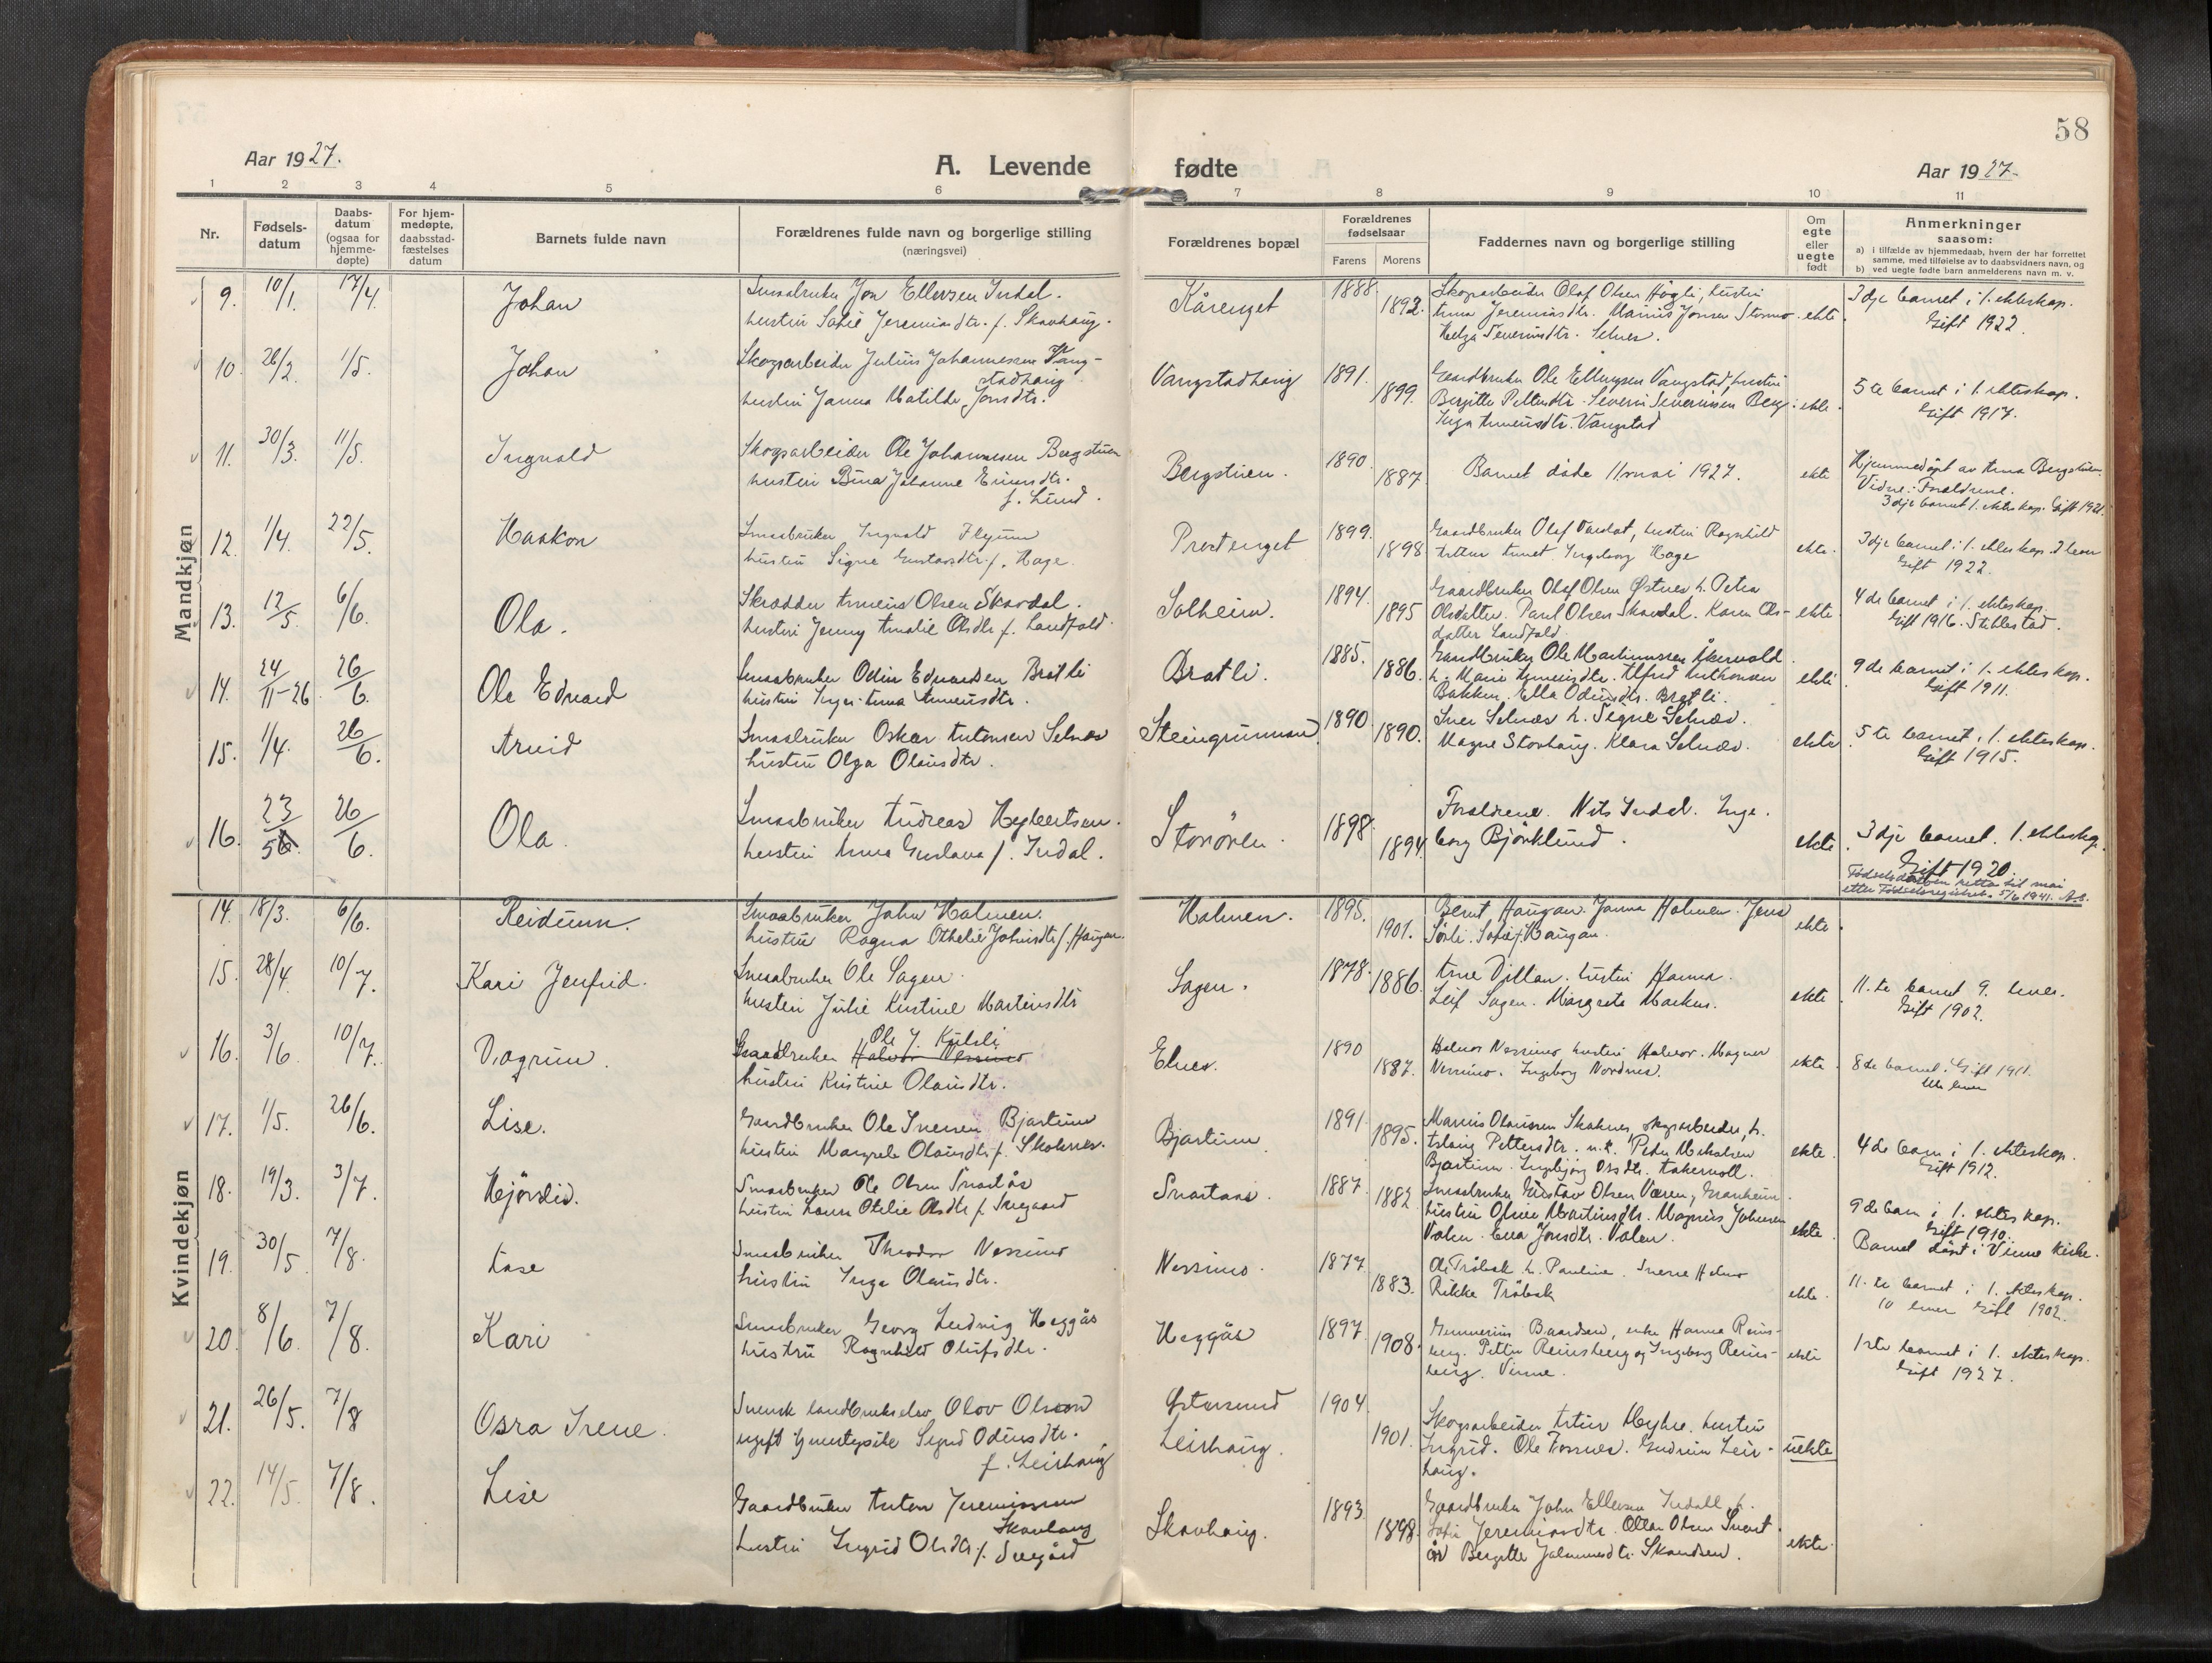 58
Aar 1927.
A. Levende fødte
Aar 1927.
1 2 3 4 5 6 7 8 9 10 11
Nr.
Fødsels-
datum
Daabs-
datum
(ogsaa for
hjemme-
døpte)
For hjem-
medøpte,
daabsstad-
fæstelses
datum
Barnets fulde navn
Forældrenes fulde navn og borgerlige stilling
(næringsvei)
Forældrenes bopæl
Forældrenes
fødselsaar
Farens Morens
Faddernes navn og borgerlige stilling
Om
egte
eller
uegte
født
Anmerkninger
saasom:
a) i tilfælde av hjemmedaab, hvem der har forrettet
samme, med tilføielse av to daabsvidners navn, og
b) ved uegte fødte barn anmelderens navn m. v.
Mandkjøn
9. 10/1. 17/4. Johan
Smaabruker Jon Ellevsen Indal.
hustru Sofie Jeremiasdtr. f. Skavhaug.
Kårenget 1888. 1892.
Skogsarbeider Olaf Olsen Høgli, hustru
Anna Jeremiasdtr. Marius Jonsen Stormo
Helga Severinsdtr. Selnes.
ekte.
3dje barnet i 1. ekteskap.
Gift 1922.
10. 26/2. 1/5. Johan
Skogsarbeider Julius Johannessen Vang-
stadhaug
hustru Janna Matilde Jonsdtr.
Vangstadhaug 1891. 1899.
Gaardbruker Ole Ellingsen Vangstad, hustru
Bergitte Pettersdtr. Severin Severinsen Berg.
Inga Arneusdtr. Vangstad
ekte.
5te barnet i 1. ekteskap.
Gift 1917.
11. 30/3. 11/5. Ingvald
Skogsarbeider Ole Johannesen Bergstuen
hustru Bina Johanne Einarsdtr.
f. Lund.
Bergstuen. 1890. 1887.
Barnet døde 11 mai 1927.
ekte
Hjemmedøpt av Anna Bergstuen.
Vidne: Forældrene.
3dje barnet 1. ekteskap. Gift 1921.
12. 1/4. 22/5. Haakon
Smaabruker Ingvald Flyum
hustru Signe Gustavsdtr f. Hage.
Prestenget 1899. 1898
Gaardbruker Olaf Vardal, hustru Ragnhild
Ingeborg Hage
ekte.
3dje barnet i 1. ekteskap. 2 lever
Gift 1922.
13. 12/5. 6/6. Ola.
Skrædder Arneus Olsen Skavdal.
hustru Jenny Amalie Olsdtr f. Landfald.
Solheim. 1894. 1895
Gaardbruker Olaf Olsen Østnes h. Petra
Olsdatter. Paul Olsen Skavdal. Karen Ols-
datter Landfald.
ekte.
4de barnet i 1. ekteskap.
Gift 1916. Stiklestad.
14. 24/11-26 26/6. Ole Edvard
Smaabruker Odin Edvardsen Bratli
hustru Inger Anna Arneusdtr.
Bratli. 1885. 1886.
Gaardbruker Ole Martinussen Åkervold
h. Marie Arneusdtr. Alfred Anthonsen
Bakken. Ella Odinsdtr. Bratli.
ekte
9de barnet i 1. ekteskap.
Gift 1911.
15. 1/4. 26/6. Arvid
Smaabruker Oskar Antonsen Selnæs
hustru Olga Olausdtr.
Steingrimmoen 1890. 1890.
Iver Selnæs h. Signe Selnæs.
Magne Stovhaug. Klara Selnæs.
ekte
5te barnet i 1. ekteskap.
Gift 1915.
16. 23/5 26/6. Ola.
Smaabruker Andreas Heglertsen.
hustru Anna Gustava f. Indal.
Storøren. 1898. 1894.
Forældrene. Nils Indal. Inge-
borg Bjørklund.
ekte
3dje barnet. 1. ekteskap.
Gift 1920.
Fødselsdatoen rettet til mai
etter Fødselsregistret. 5/6 1941.
Kvindekjøn
14. 18/3. 6/6. Reidunn.
Smaabruker John Holmen.
hustru Ragna Othelie Johnsdtr f. Haugan.
Holmen. 1895. 1901.
Bernt Haugan. Janna Holmen. Jens
Sørli. Sofie Haugan.
ekte
15. 28/4. 10/7. Kari Jenfrid.
Smaabruker Ole Sagen.
hustru Julie Kristine Martinsdtr
Sagen. 1878. 1886.
Arne Djiltan. hustru Hanna.
Leif Sagen. Margrete Markus.
ekte
11.te barnet 9. lever.
Gift 1902.
16. 3/6. 10/7. Dagrun.
Ole J. Kulsli
Gaardbruker Halvor Nessimo
hustru Kristine Olausdtr.
Elnes. 1890 1887.
Halvor Nessimo hustru Halvor. Magner
Nessimo. Ingeborg Nordnes.
ekte.
8de barnet. Gift 1911.
alle lever
17. 1/5. 26/6. Lise.
Gaardbruker Ole Iversen Bjartun
hustru Margrete Olausdtr f. Skoknes.
Bjartun 1891 1895.
Marius Olaussen Skoknes, skogsarbeider, h.
Aslaug Pettersdtr. u.k. Peder Mikalsen
Bjartun. Ingebjørg Olsdtr. Aakervoll.
ekte.
4de barn i 1. ekteskap.
Gift 1912.
18. 19/3. 3/7. Hjørdis.
Smaabruker Ole Olsen Snaståås
hustru Laura Otelie Olsdtr f. Svegaard
Snaasaas. 1887. 1882
Smaabruker Gustav Olsen Væren, Granheim.
hustru Oline Martinsdtr. Magnus Johnsen
Volen. Eva Jonsdtr. Volen.
ekte.
9de barn i 1. ekteskap.
Gift 1910.
Barnet døpt i Vinne kirke.
19. 30/5. 7/8. Aase
Smaabruker Theodor Nessimo
hustru Inga Olausdtr.
Nessimo. 1877. 1883.
Ole Tråbak h. Pauline. Sverre Holmo
Rikke Tråbak
ekte.
11.te barnet i 1. ekteskap.
10 lever Gift 1902.
20. 8/6. 7/8. Kari
Smaabruker Georg Ludvig Heggås
hustru Ragnhild Olufsdtr.
Heggås 1897. 1908.
Gunnerius Baardsen, enke Hanna Reins-
berg. Petter Reinsberg og Ingeborg Reins-
berg. Vinne.
ekte
1ste barnet i 1. ekteskap.
Gift 1927.
21. 26/5. 7/8 Osra Irene.
Svensk landbrukselev Olov Olsson
ugift tjenestepike Sigrid Odinsdtr.
f. Leirhaug
Østersund
Leirhaug. 1904. 1901.
Skogsarbeider Artur Myhre. hustru
Ingrid. Ole Fossnes. Gudrun Leir-
haug.
uekte
22. 14/5. 7/8. Lise
Gaardbruker Anton Jeremiassen
Skavhaug
hustru Ingrid Olsdtr f. Svegård
Skavhaug. 1893 1898.
Gaardbruker John Ellevsen Indall, h.
Sofie Jeremiasdtr. Ottar Olsen Snast-
ås Bergitte Johannesdtr. Skandsen.
ekte.